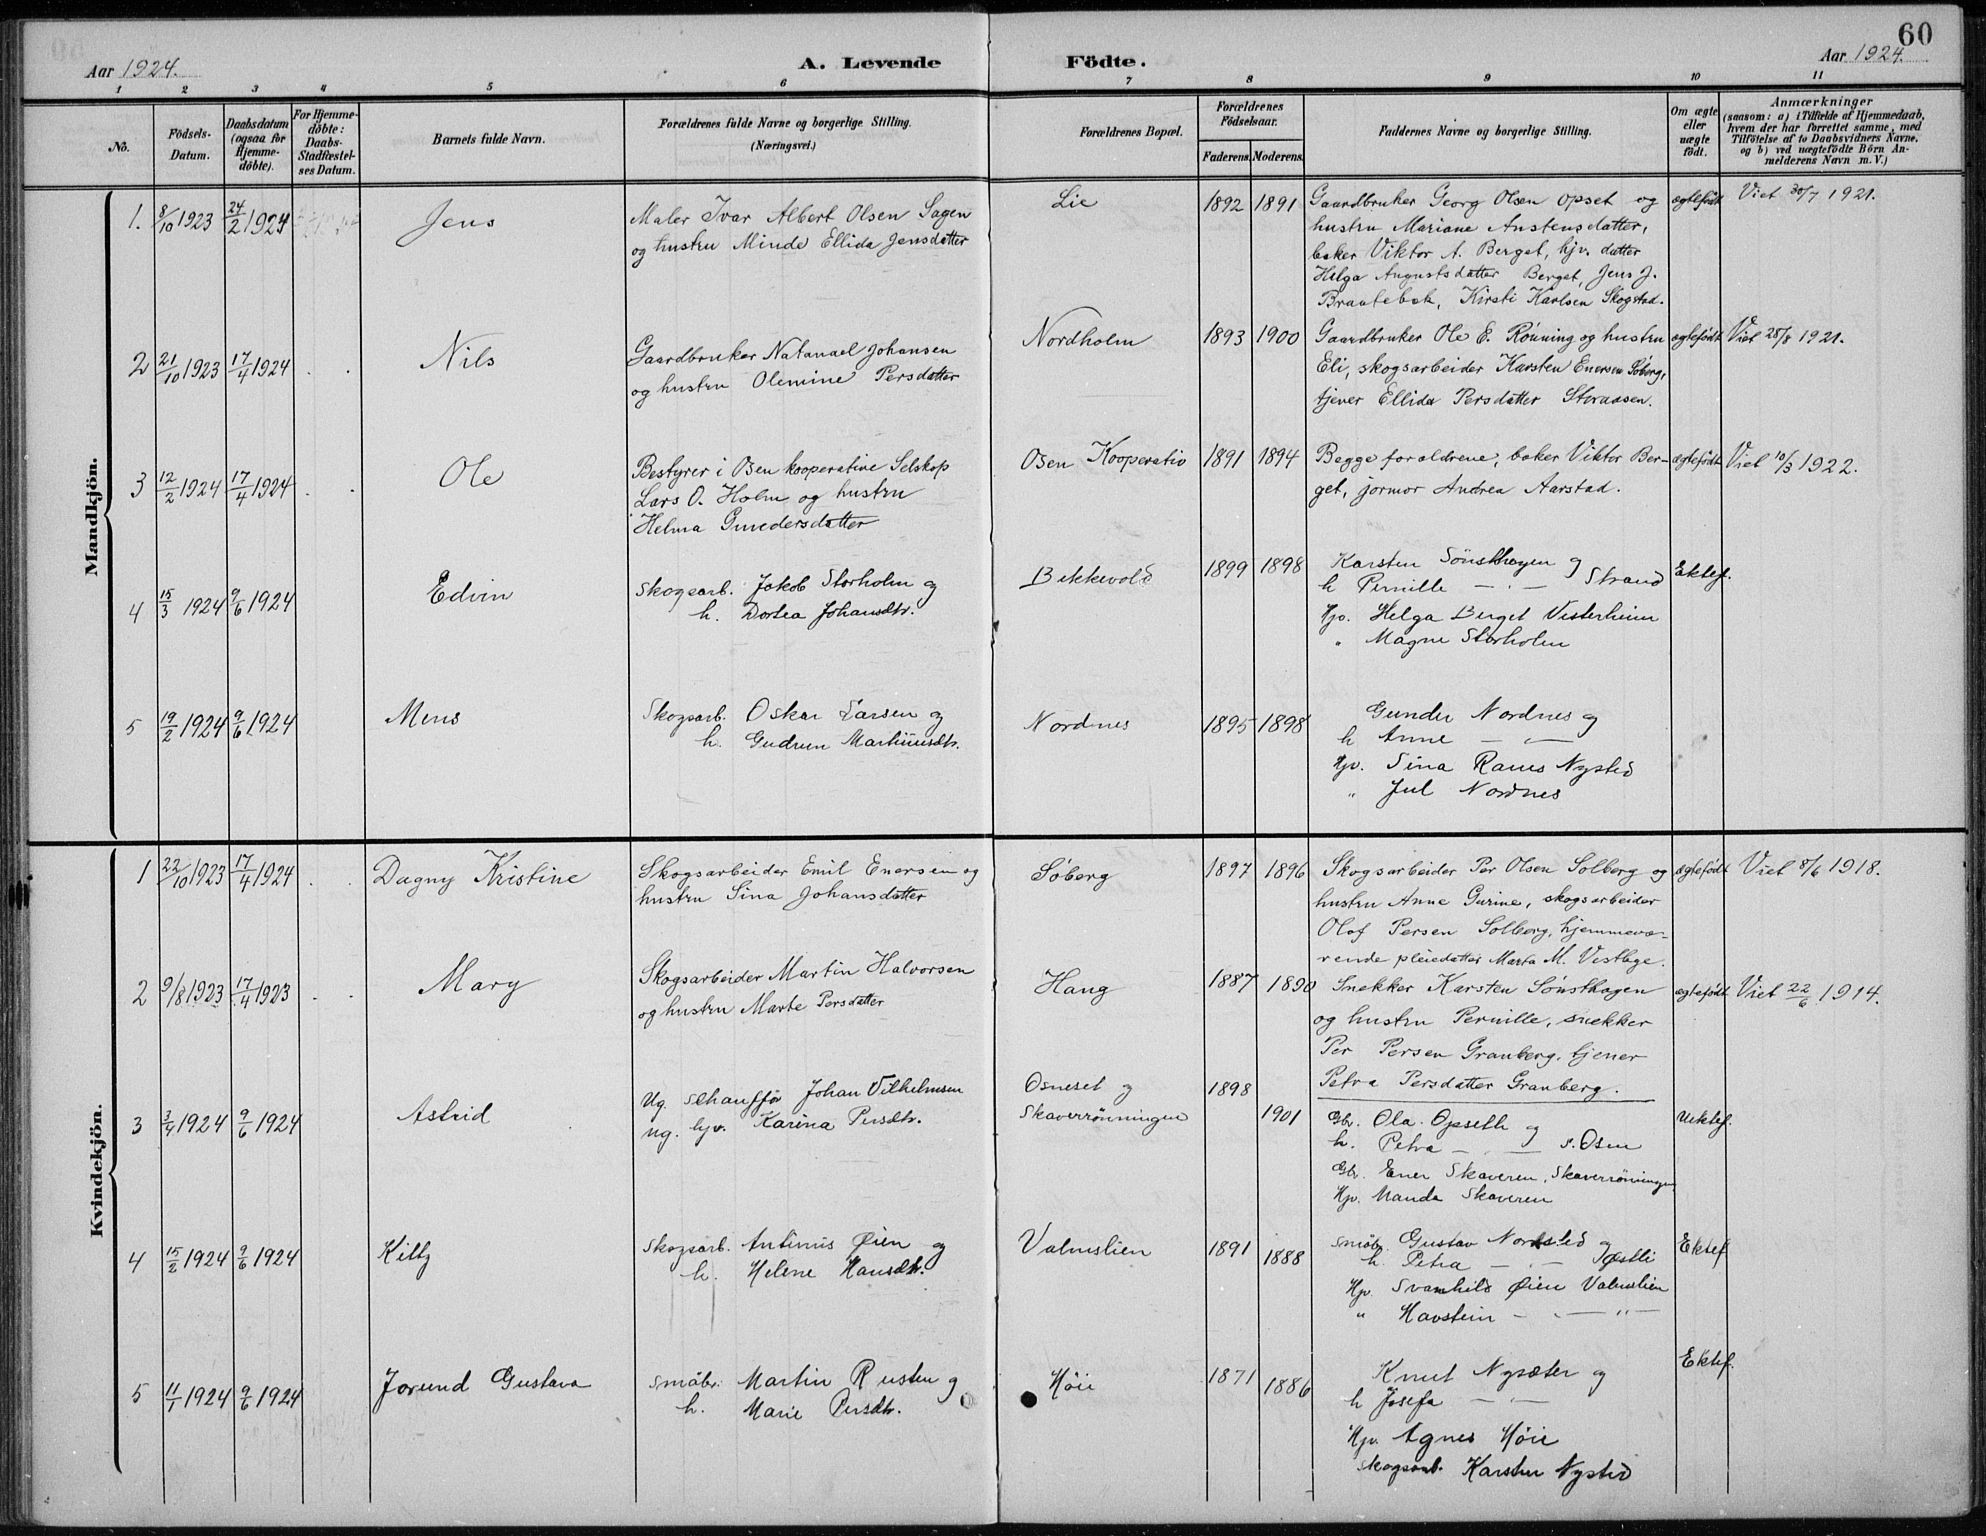 60
Aar 1924.
A. Levende
Födte.
Aar 1924.
1 2 3 4 5 6 7 8 9 10 11
No.
Födsels-
Datum.
Daabsdatum
(ogsaa for
Hjemme-
döbte).
For Hjemme-
döbte:
Daabs-
Stadfæstel-
ses Datum.
Barnets fulde Navn.
Forældrenes fulde Navne og borgerlige Stilling.
(Næringsvei.)
Forældrenes Bopæl.
Forældrenes
Födselsaar.
Faderens. Moderens.
Faddernes Navne og borgerlige Stilling.
Om ægte
eller
uægte
födt.
Anmærkninger
(saasom: a) i Tilfælde af Hjemmedaab,
hvem der har forrettet samme, med
Tilföielse af to Daabsvidners Navne.
og b) ved uægtefödte Börn An-
melderens Navn m. V.)
Mandkjön.
1. 8/10 1923 24/2 1924 Jens
Maler Ivar Albert Olsen Sagen
og hustru Minda Ellida Jensdatter
Lie 1892 1891
Gaardbruker Georg Olsen Opset og
hustru Mariane Austensdatter,
baker Viktor A. Berget, hjv. datter
Helga Augustsdatter Berget, Jens J.
Braatebak, Kirsti Karlsen Skogstad.
ægtefödt Viet 30/7 1921.
2 21/10 1923 17/4 1924 Nils
Gaardbruker Natanael Johansen
og hustru Olemine Persdatter
Nordholm 1893 1900
Gaardbruker Ole E. Rönning og hustru
Eli, skogsarbeider Karsten Enersen Söberg,
tjener Ellida Persdatter Storaasen.
ægtefödt Viet 28/8 1921.
3 12/2 1924 17/4 1924 Ole
Bestyrer i Osen kooperative Selskap
Lars O. Holm og hustru
Helma Gundersdatter
Osen Kooperativ 1891 1894
Begge foraldrene, baker Viktor Ber-
get, jormor Andrea Aarstad.
ægtefödt Viet 10/3 1922.
4 15/3 1924 9/6 1924 Edvin
Skogsarb. Jakob Storholm og
h. Dortea Johansdtr.
Bekkevold 1899 1898
Karsten Sönsthagen og
h Pernille — " — Strand
Hjv. Helga Berget Vesterheim
" Magne Storholm
Ektef.
5 19/2 1924 9/6 1924 Mens
Skogsarb. Oskar Larsen og
h. Gudrun Martinusdtr.
Nordnes 1895 1898
Gunder Nordnes og
h Anne — " —
Hjv. Sina Nysted
" Jul Nordnes
Kvindekjön.
1 22/10 1923 17/4 1924 Dagny Kristine
Skogsarbeider Emil Enersen og
hustru Sina Johansdatter
Söberg 1897 1896
Skogsarbeider Per Olsen Solberg og
hustru Anne Gurine, skogsarbeider
Olof Persen Solberg, hjemmevæ-
rende pleiedatter Marta M. Vestbye.
ægtefödt Viet 8/6 1918.
2 9/8 1923 17/4 1923 Mary
Skogsarbeider Martin Halvorsen
og hustru Marte Persdatter
Haug 1887 1890
Snekker Karsten Sönsthagen
og hustru Pernille, snekker
Per Persen Granberg, tjener
Petra Persdatter Granberg.
ægtefödt Viet 22/6 1914.
3 3/4 1924 9/6 1924 Astrid
Ug. schauffør Johan Vilhelmsen
ug. hjv. Karina Persdtr.
Osneset og
Skaverrönningen
1898 1901
Gbr. Ola Opseth og
h. Petra — " — S. Osen
Gbr. Ener Skaveren, Skaverrönningen
Hjv. Manda Skaveren
Uektef.
4 15/2 1924 9/6 1924 Kitty
Skogsarb. Antinius Øien og
h. Helene Hansdtr.
Valmslien 1891 1888
Småbr. Gustav Nordsted og
h. Petra — " — Østli
Hjv. Svanhild Øien Valmslien
" Havstein — " — "
Ektef
5 11/1 1924 9/6 1924 Jorund Gustava
Småbr. Martin Rusten og
h. Marie Persdtr.
Höie 1871 1886
Knut Nysæter og
h Josefa — " —
Hjv. Agnes Höie
Skogsarb. Karsten Nysted
Ektef.